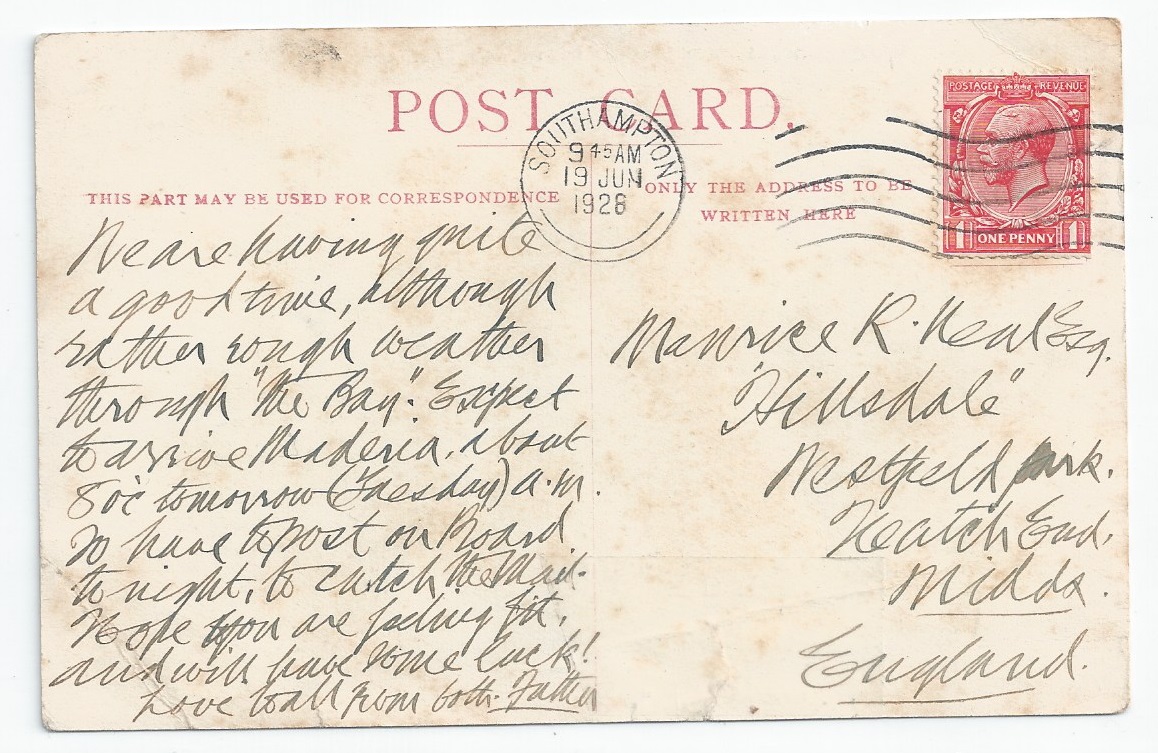 POST CARD.
SOUTHAMPTON
9 45 AM
19 JUN
1928
POSTAGE REVENUE
1 ONE PENNY 1
THIS PART MAY BE USED FOR CORRESPONDENCE
ONLY THE ADDRESS TO BE
WRITTEN HERE
We are having quite
a good time, although
rather rough weather
through "the Bay". Expect
to arrive Maderia, about
8 o'c tomorrow (Tuesday) a.m.
so have to post on Board
to night, to catch the Mail.
Hope you are feeling fit,
and will have some luck!
Love to all from both. Father
Maurice R. Neal Esq.
"Hillsdale"
Westfield Park.
Hatch End.
Middx.
England.